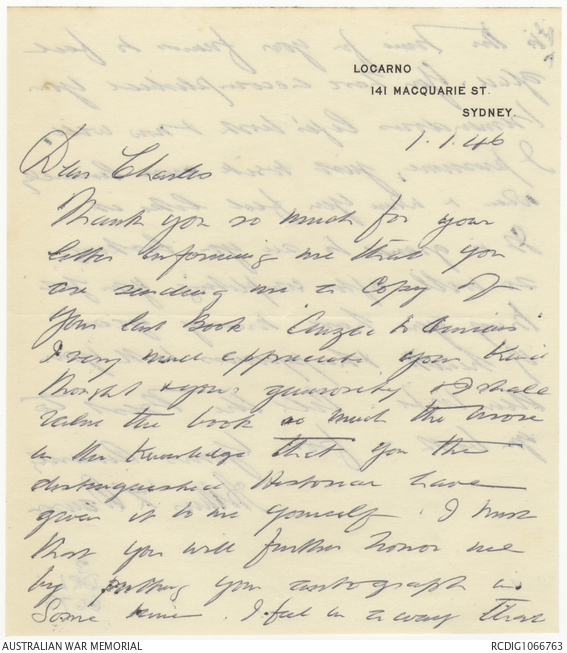 LOCARNO
141 MACQUARIE ST.
SYDNEY.
1.1.46
Dear Charles
Thank you so much for your
letter informing me that you
are sending me a copy of
your last Book "Anzac to Amiens"
I very much appreciate your kind
thought & your generosity & I shall
value the book so much the more
in the knowledge that you the
distinguished Historian have
given it to me yourself. I trust
that you will further honor me
by putting your autograph in
some time. I feel in a way that
AUSTRALIAN WAR MEMORIAL
RCDIG1066763